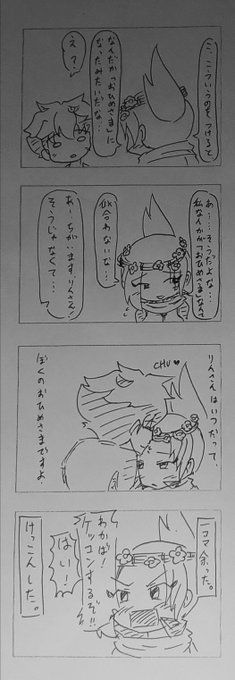 こ、こういうのをつけると、
なんだか「おひめさま」に
なったみたいだな…
え？
私なんかが「おひめさま」なんて
似合わないな…
そうじゃなくて…
りんさんはいつだって、
CHU♥
ぼくのおひめさまですよ。
一コマ余った。
わかば！
ケッコンするぞ!!
はい！
けっこんした。